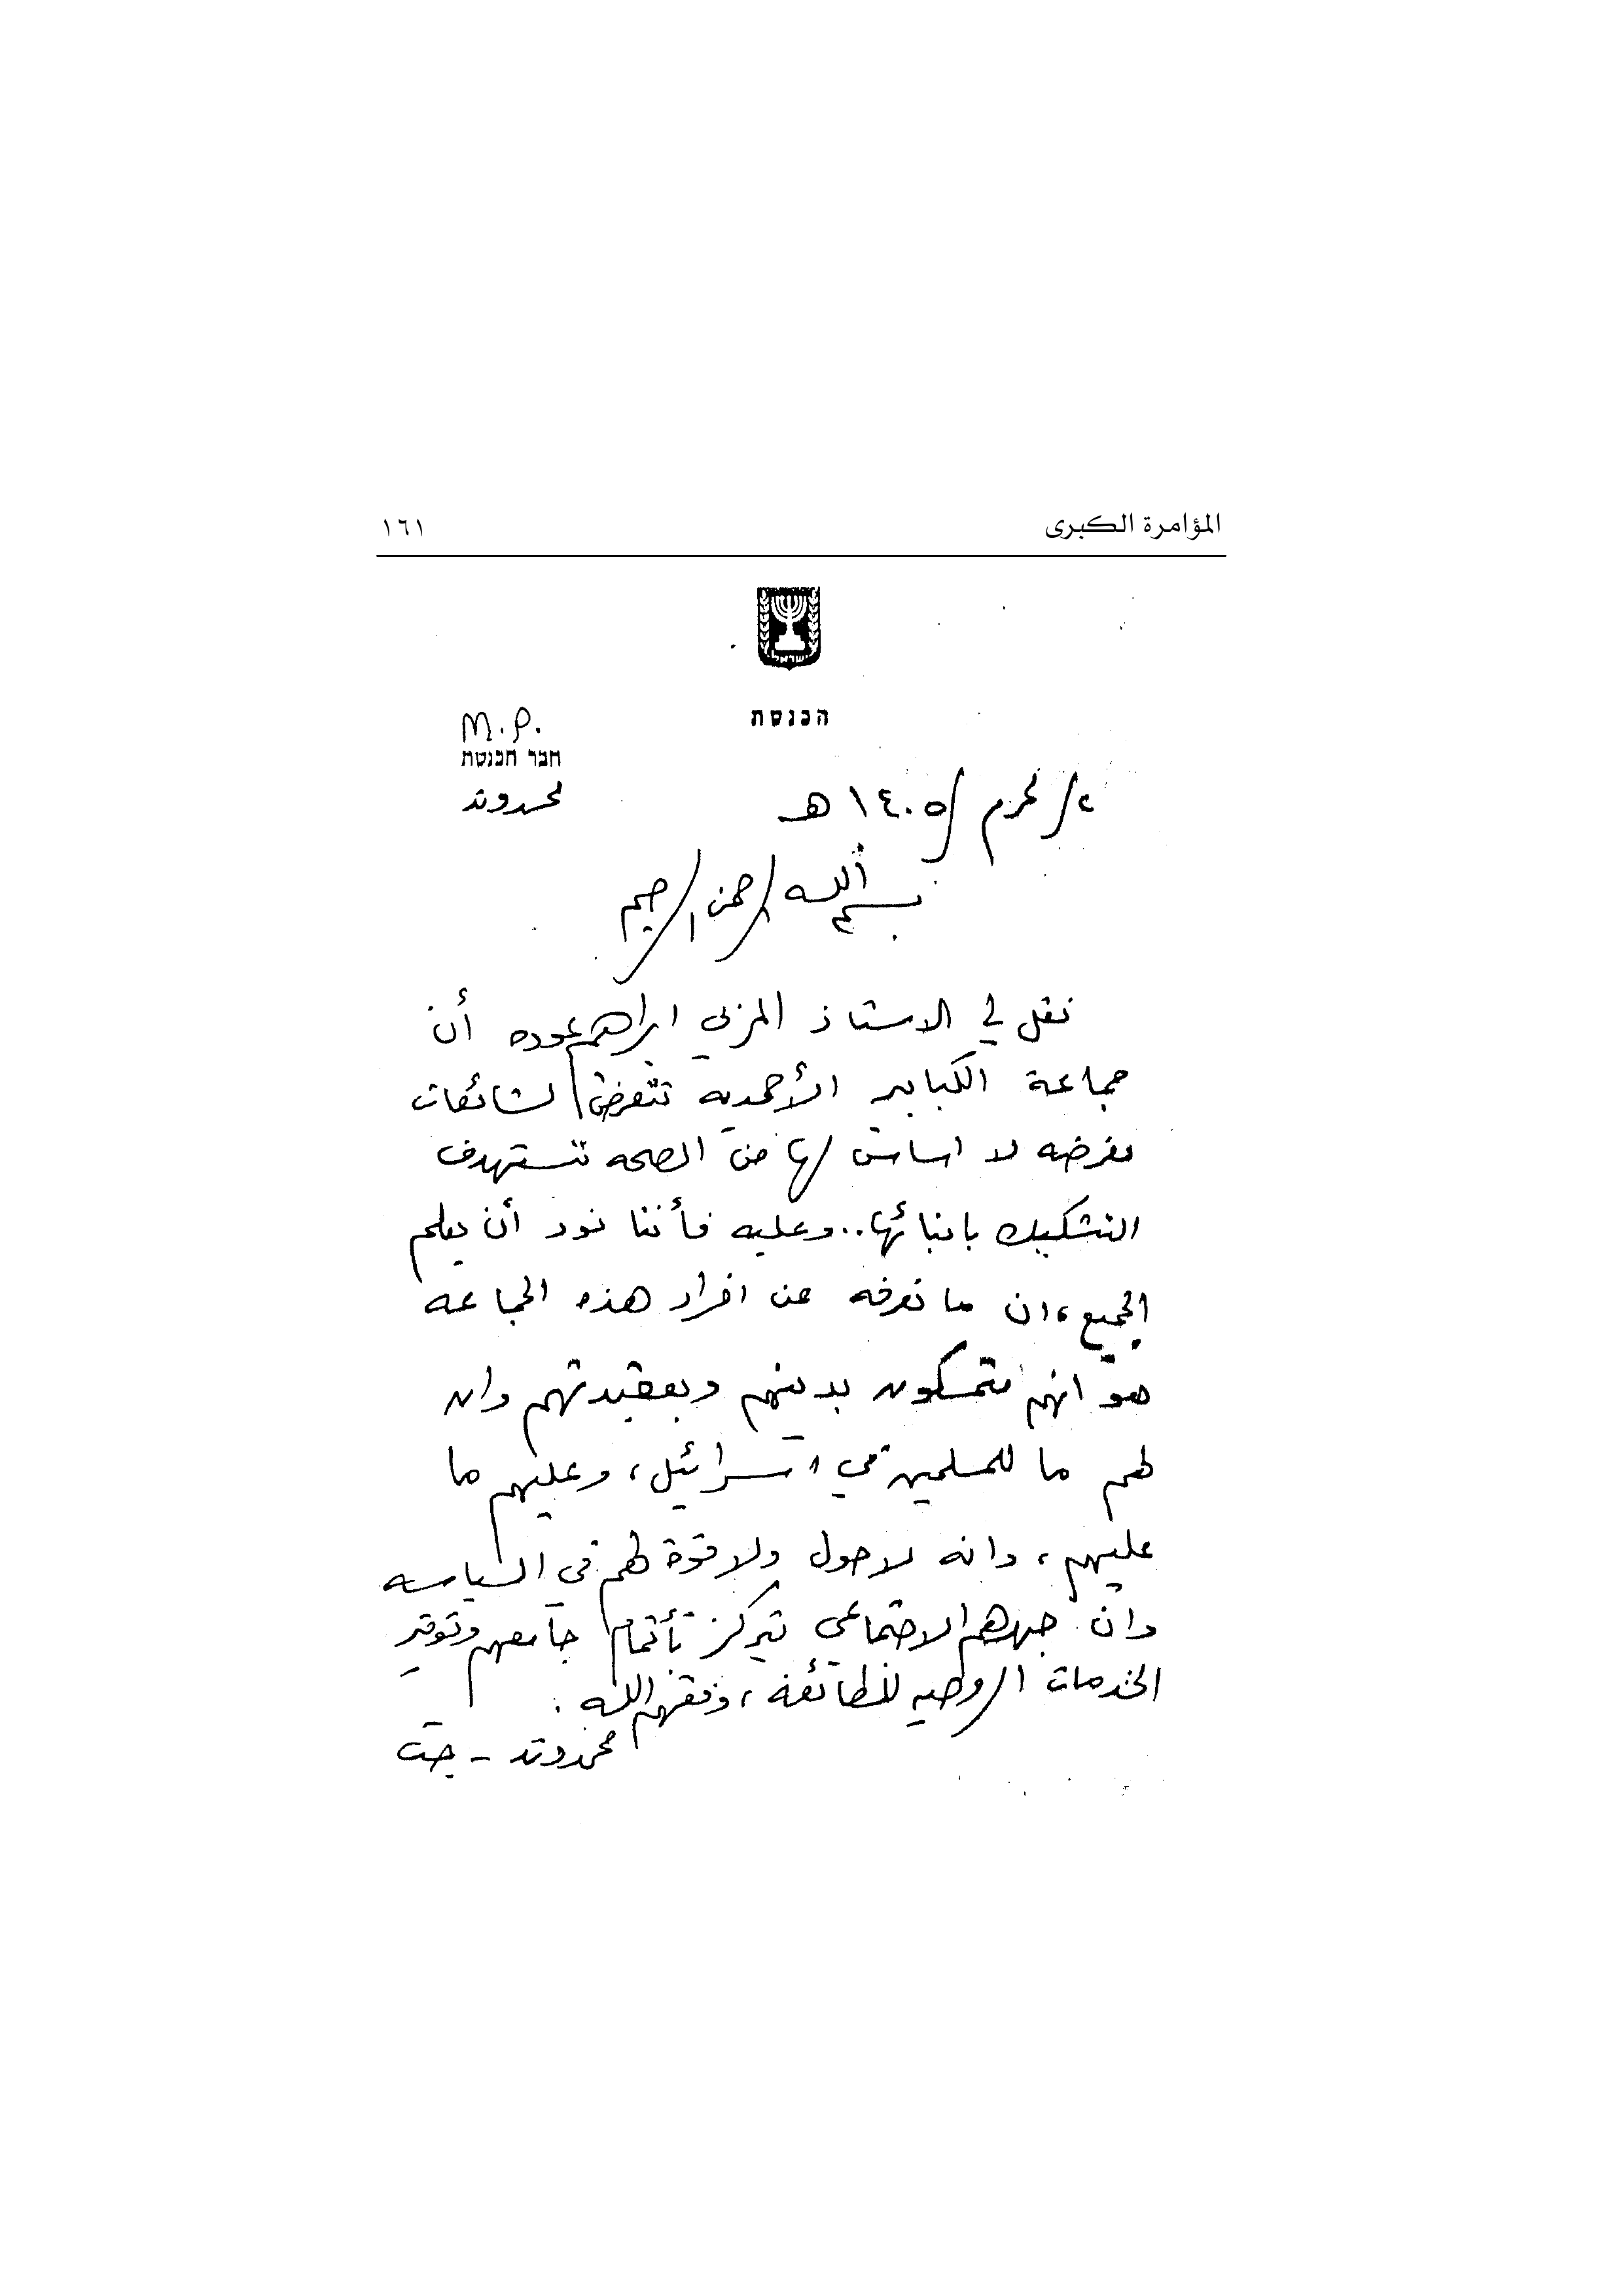 المؤامرة الكبرى ١٦١
ישראל
הכנסת
M.P.
חבר הכנסת
محمد وتد
٢/ محرم / ١٤٠٥ هـ
بسم الله الرحمن الرحيم
نقل لي الاستاذ المربي ابراهيم عوده أن
جماعة الكبابير الأحمديه تتعرض لشائعات
مغرضه لا اساس لها من الصحه تستهدف
التشكيك بابنائها.. وعليه فأننا نود أن يعلم
الجميع، ان ما نعرفه عن افراد هذه الجماعه
هو انهم متمسكون بدينهم وبعقيدتهم وان
لهم ما للمسلمين في اسرائيل، وعليهم ما
عليهم، وانه لا حول ولا قوة لهم في السياسه
وان جهدهم الاجتماعي تركز بأتمام جامعهم وتوفير
الخدمات الروحيه للطائفه، وفقهم الله.
محمد وتد - جت